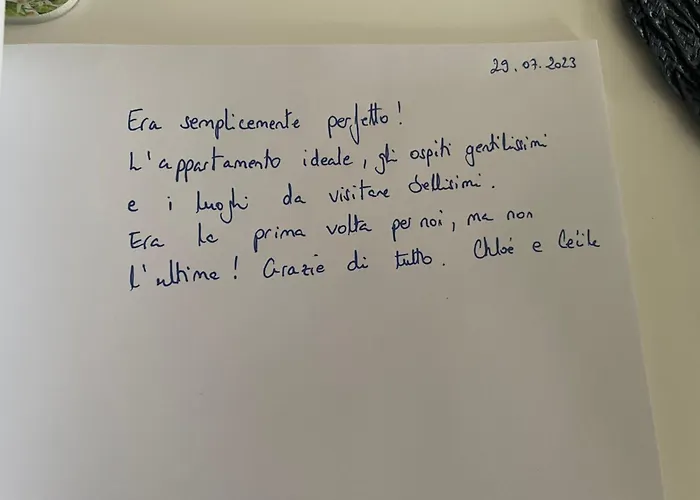 29.07.2023
Era semplicemente perfetto!
L'appartamento ideale, gli ospiti gentilissimi
e i luoghi da visitare bellisimi.
Era la prima volta per noi, ma non
l'ultima! Grazie di tutto. Chloé e Cécile